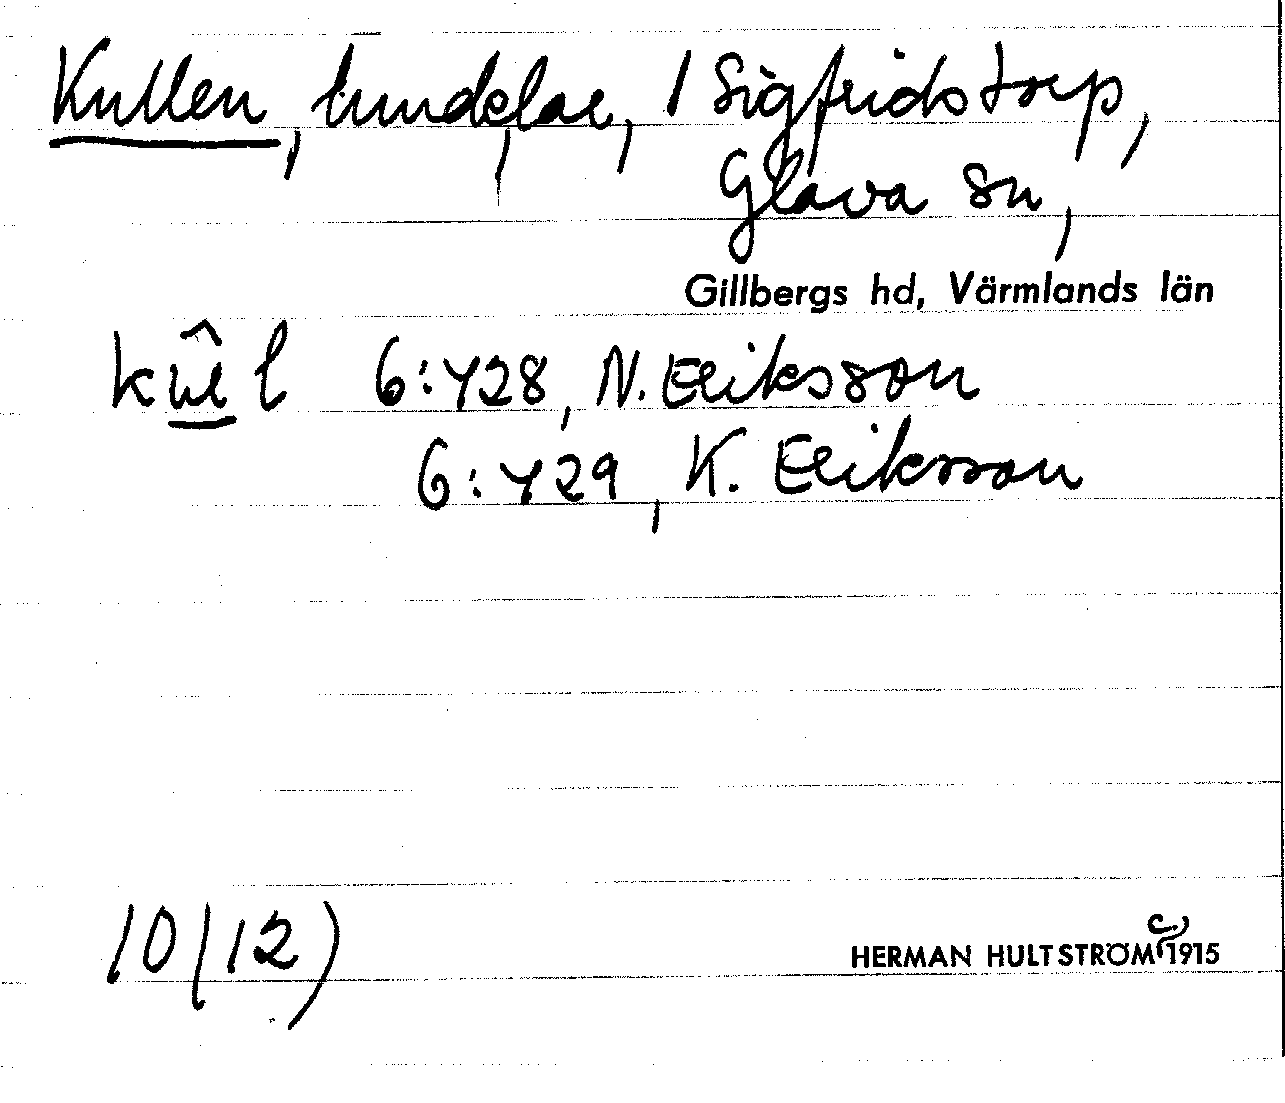 Kullen, hmdelar, / Sigfridstorp,
Glava sn,
Gillbergs hd, Värmlands län
6:428, N. Eriksson
6:429, K. Eriksson
10/12)
HERMAN HULTSTRÖM c. 1915